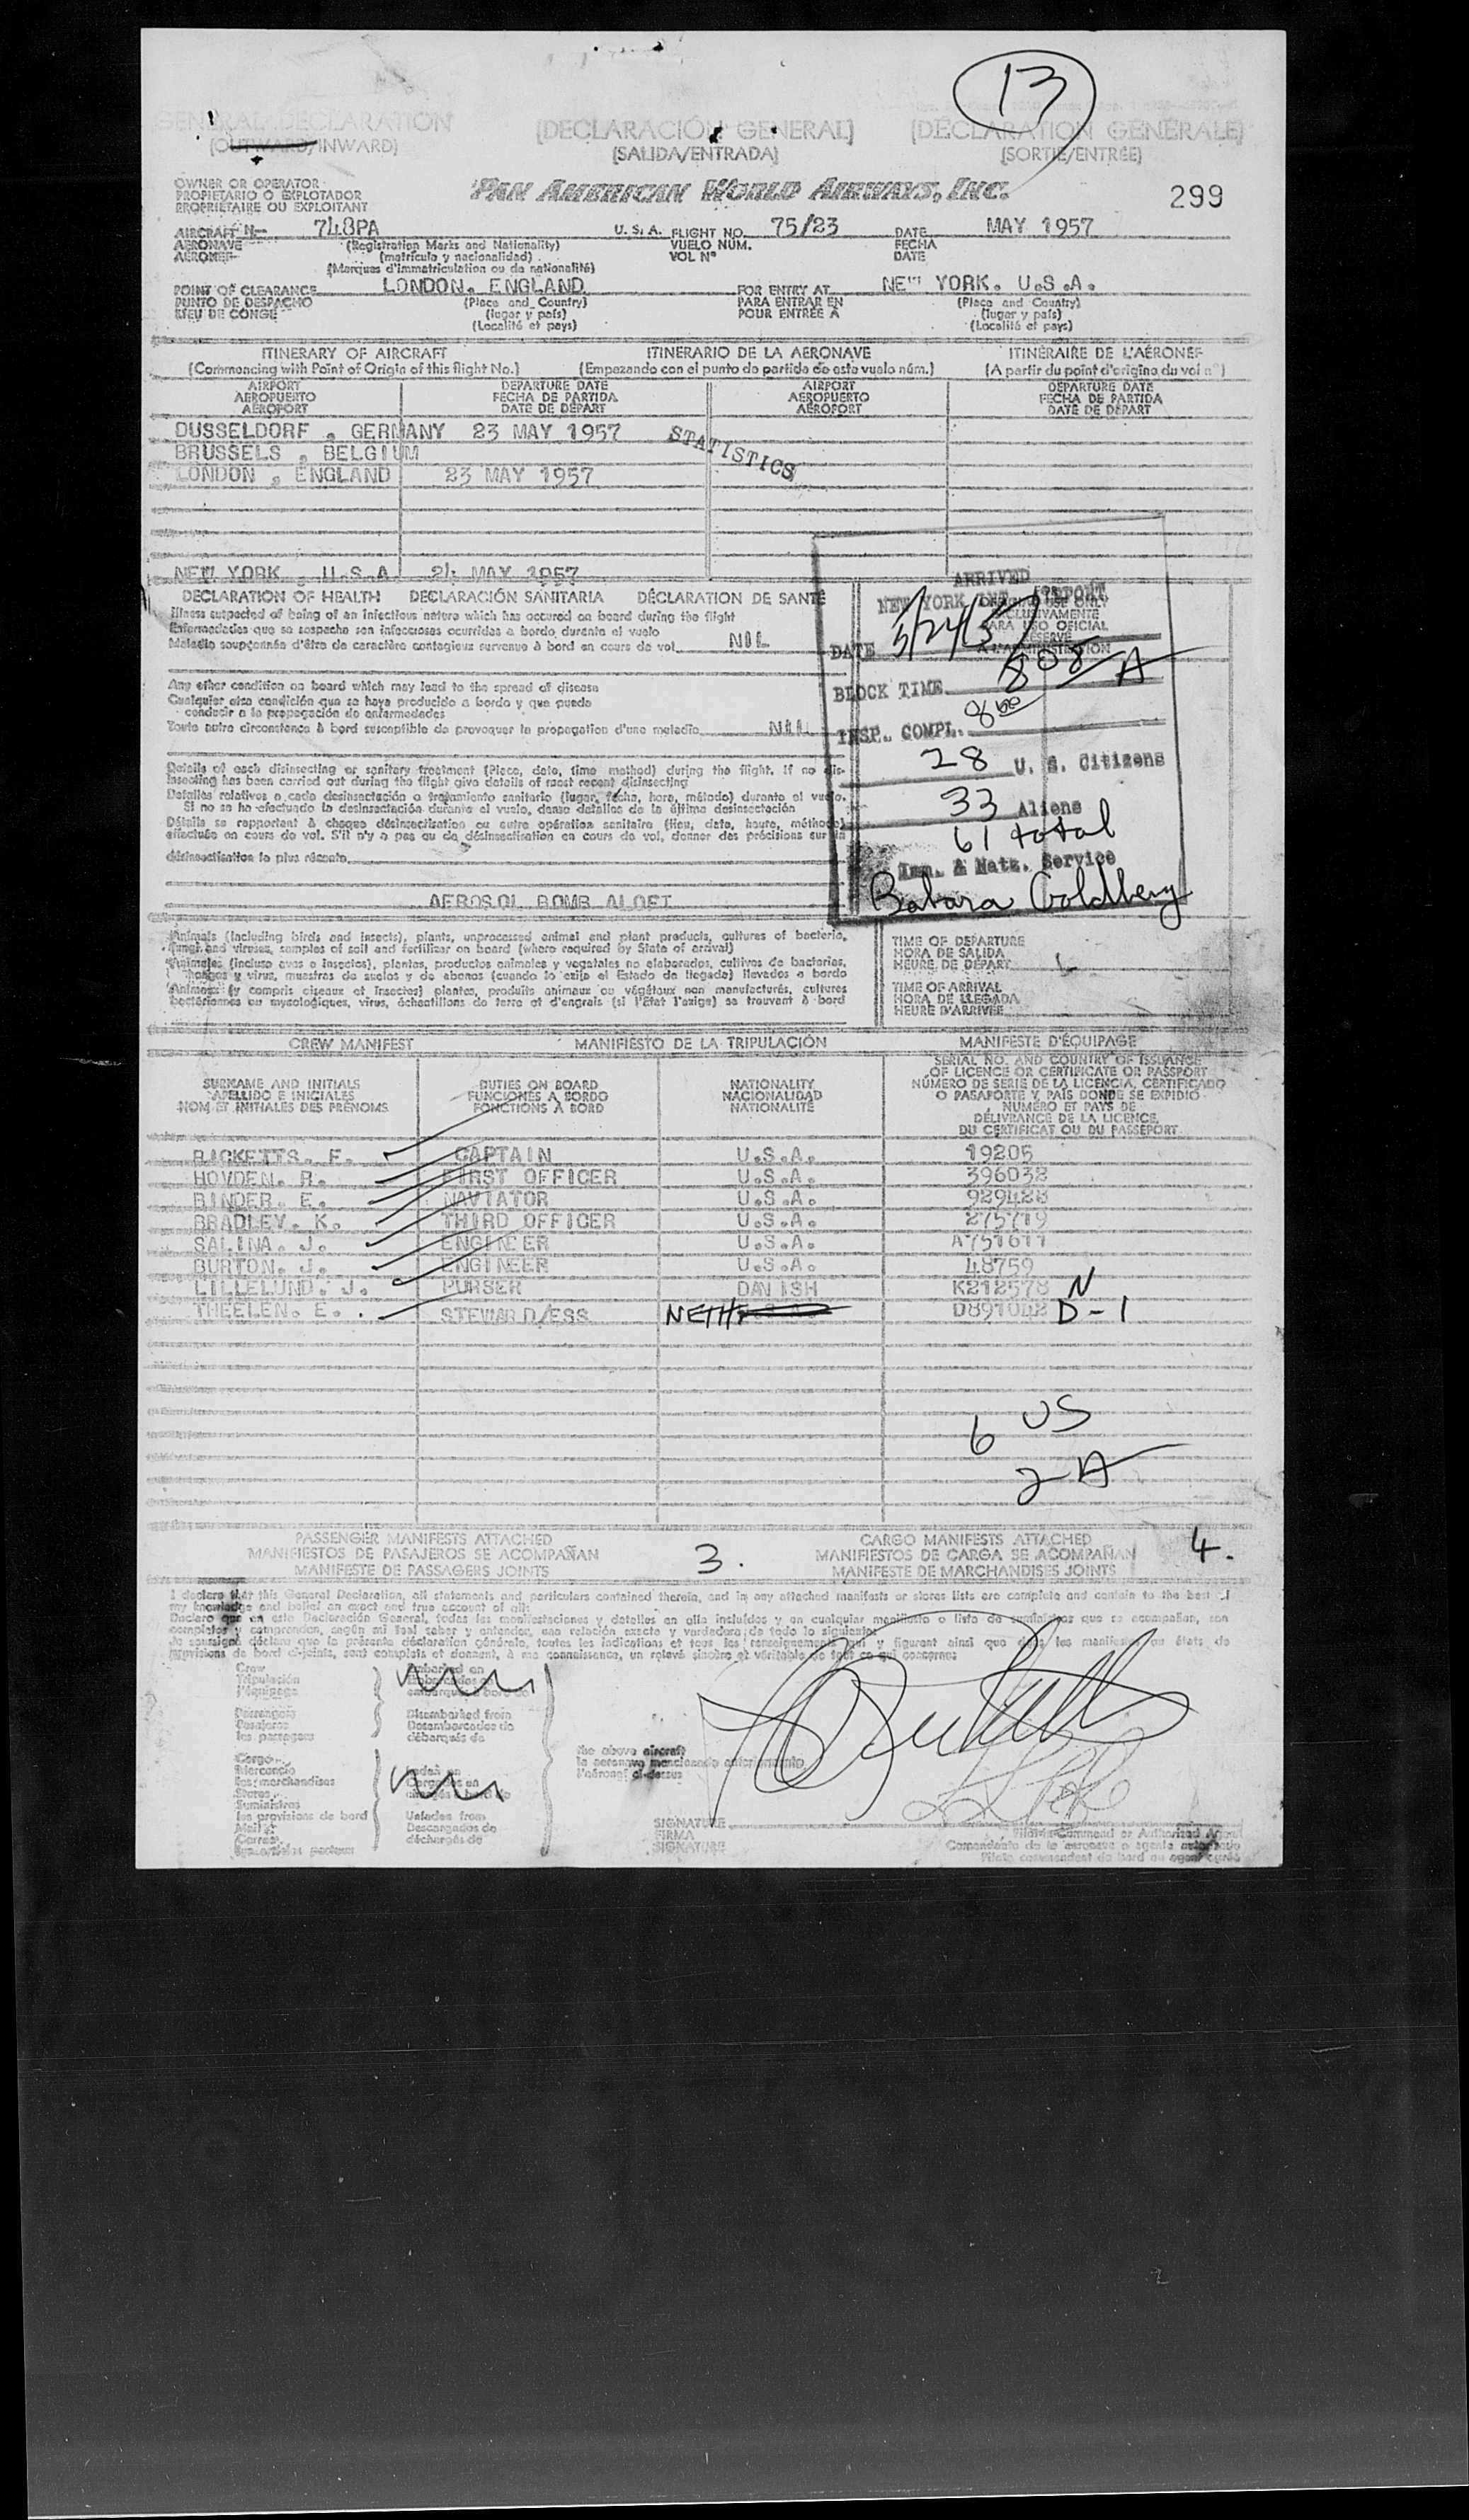 13
GENERAL DECLARATION [DECLARACIÓN GENERAL] [DÉCLARATION GÉNÉRALE]
(OUTWARD/INWARD) (SALIDA/ENTRADA) (SORTIE/ENTRÉE)
OWNER OR OPERATOR
PROPIETARIO O EXPLOTADOR
PROPRIÉTAIRE OU EXPLOITANT
PAN AMERICAN WORLD AIRWAYS, INC.
299
AIRCRAFT N- 748PA U. S. A. FLIGHT NO. 75/23 DATE MAY 1957
AERONAVE (Registration Marks and Nationality) VUELO NÚM. FECHA
AÉRONEF (matrícula y nacionalidad) VOL Nº DATE
(Marques d'immatriculation ou de nationalité)
POINT OF CLEARANCE LONDON. ENGLAND FOR ENTRY AT NEW YORK. U.S.A.
PUNTO DE DESPACHO (Place and Country) PARA ENTRAR EN (Place and Country)
LIEU DE CONGÉ (lugar y país) POUR ENTRÉE À (lugar y país)
(Localité et pays) (Localité et pays)
ITINERARY OF AIRCRAFT ITINERARIO DE LA AERONAVE ITINÉRAIRE DE L'AÉRONEF
(Commencing with Point of Origin of this flight No.) (Empezando con el punto de partida de este vuelo núm.) (A partir du point d'origine du vol nº)
AIRPORT DEPARTURE DATE AIRPORT DEPARTURE DATE
AEROPUERTO FECHA DE PARTIDA AEROPUERTO FECHA DE PARTIDA
AÉROPORT DATE DE DÉPART AÉROPORT DATE DE DÉPART
DUSSELDORF , GERMANY 23 MAY 1957
STATISTICS
BRUSSELS , BELGIUM
LONDON , ENGLAND 23 MAY 1957
NEW YORK , U.S.A. 24 MAY 1957
DECLARATION OF HEALTH DECLARACIÓN SANITARIA DÉCLARATION DE SANTÉ
Illness suspected of being of an infectious nature which has occured on board during the flight
Enfermedades que se sospecha son infecciosas ocurridas a bordo durante el vuelo
Maladie soupçonnée d'être de caractère contagieux survenue à bord en cours de vol. NIL
Any other condition on board which may lead to the spread of disease
Cualquier otra condición que se haya producido a bordo y que pueda
conducir a la propagación de enfermedades
Toute autre circonstance à bord susceptible de provoquer la propagation d'une maladie NIL
Details of each disinsecting or sanitary treatment (Place, date, time method) during the flight. If no dis-
insecting has been carried out during the flight give details of most recent disinsecting
Detalles relativos a cada desinsectación o tratamiento sanitario (lugar, fecha, hora, método) durante el vuelo.
Si no se ha efectuado la desinsectación durante el vuelo, dense detalles de la última desinsectación
Détails se rapportant à chaque désinsectisation ou autre opération sanitaire (lieu, date, heure, méthode)
effectuée en cours de vol. S'il n'y a pas eu de désinsectisation en cours de vol, donner des précisions sur la
désinsectisation la plus récente
AEROSOL BOMB ALOFT
ARRIVED
NEW YORK INT. AIRPORT
DATE 5/24/57
BLOCK TIME 808 A
INSP. COMPL.
28 U. S. Citizens
33 Aliens
61 total
Imm. & Natz. Service
Babara Goldberg
Animals (including birds and insects), plants, unprocessed animal and plant products, cultures of bacteria,
fungi and viruses, samples of soil and fertilizer on board (where required by State of arrival)
Animales (incluso aves e insectos), plantas, productos animales y vegetales no elaborados, cultivos de bacterias,
hongos y virus, muestras de suelos y de abonos (cuando lo exija el Estado de llegada) llevados a bordo
Animaux (y compris oiseaux et insectes) plantes, produits animaux ou végétaux non manufacturés, cultures
bactériennes ou mycologiques, virus, échantillons de terre et d'engrais (si l'État l'exige) se trouvant à bord
TIME OF DEPARTURE
HORA DE SALIDA
HEURE DE DÉPART
TIME OF ARRIVAL
HORA DE LLEGADA
HEURE D'ARRIVÉE
CREW MANIFEST MANIFIESTO DE LA TRIPULACIÓN MANIFESTE D'ÉQUIPAGE
SURNAME AND INITIALS
APELLIDO E INICIALES
NOM ET INITIALES DES PRÉNOMS
DUTIES ON BOARD
FUNCIONES A BORDO
FONCTIONS À BORD
NATIONALITY
NACIONALIDAD
NATIONALITÉ
SERIAL NO. AND COUNTRY OF ISSUANCE
OF LICENCE OR CERTIFICATE OR PASSPORT
NÚMERO DE SERIE DE LA LICENCIA, CERTIFICADO
O PASAPORTE Y PAÍS DONDE SE EXPIDIÓ
NUMÉRO ET PAYS DE
DÉLIVRANCE DE LA LICENCE,
DU CERTIFICAT OU DU PASSEPORT
RICKETTS. F. CAPTAIN U.S.A. 19205
HOVDEN. R. FIRST OFFICER U.S.A. 396032
BINDER. E. NAVIATOR U.S.A. 929428
BRADLEY. K. THIRD OFFICER U.S.A. 275719
SALINA. J. ENGINEER U.S.A. A751611
BURTON. J. ENGINEER U.S.A. 48759
LILLELUND. J. PURSER DANISH K212578 N
THEELEN. E. STEWARD/ESS NETH D891042 D-1
6 US
2 A
PASSENGER MANIFESTS ATTACHED CARGO MANIFESTS ATTACHED
MANIFIESTOS DE PASAJEROS SE ACOMPAÑAN 3. MANIFIESTOS DE CARGA SE ACOMPAÑAN 4.
MANIFESTE DE PASSAGERS JOINTS MANIFESTE DE MARCHANDISES JOINTS
I declare that this General Declaration, all statements and particulars contained therein, and in any attached manifests or stores lists are complete and contain to the best of
my knowledge and belief an exact and true account of all:
Declaro que en esta Declaración General, todas las manifestaciones y detalles en ella incluídos y en cualquier manifiesto o lista de suministros que se acompañan, son
completos y comprenden, según mi leal saber y entender, una relación exacta y verdadera de todo lo siguiente:
Je soussigné déclare que la présente déclaration générale, toutes les indications et tous les renseignements qui y figurent ainsi que dans les manifestes ou états de
provisions de bord ci-joints, sont complets et donnent, à ma connaissance, un relevé sincère et véritable de tout ce qui concerne:
Crew
Tripulación
l'équipage
Passengers
Pasajeros
les passagers
Embarked on
Disembarked from
Desembarcados de
débarqués de
Cargo
Mercancía
les marchandises
Stores
Suministros
les provisions de bord
Mail
Correo
Unladen from
Descargados de
déchargés de
the above aircraft
la aeronave mencionada anteriormente
l'aéronef ci-dessus
SIGNATURE
FIRMA
SIGNATURE
Pilot in Command or Authorized Agent
Comandante de la aeronave o agente autorizado
Pilote commandant de bord ou agent agréé